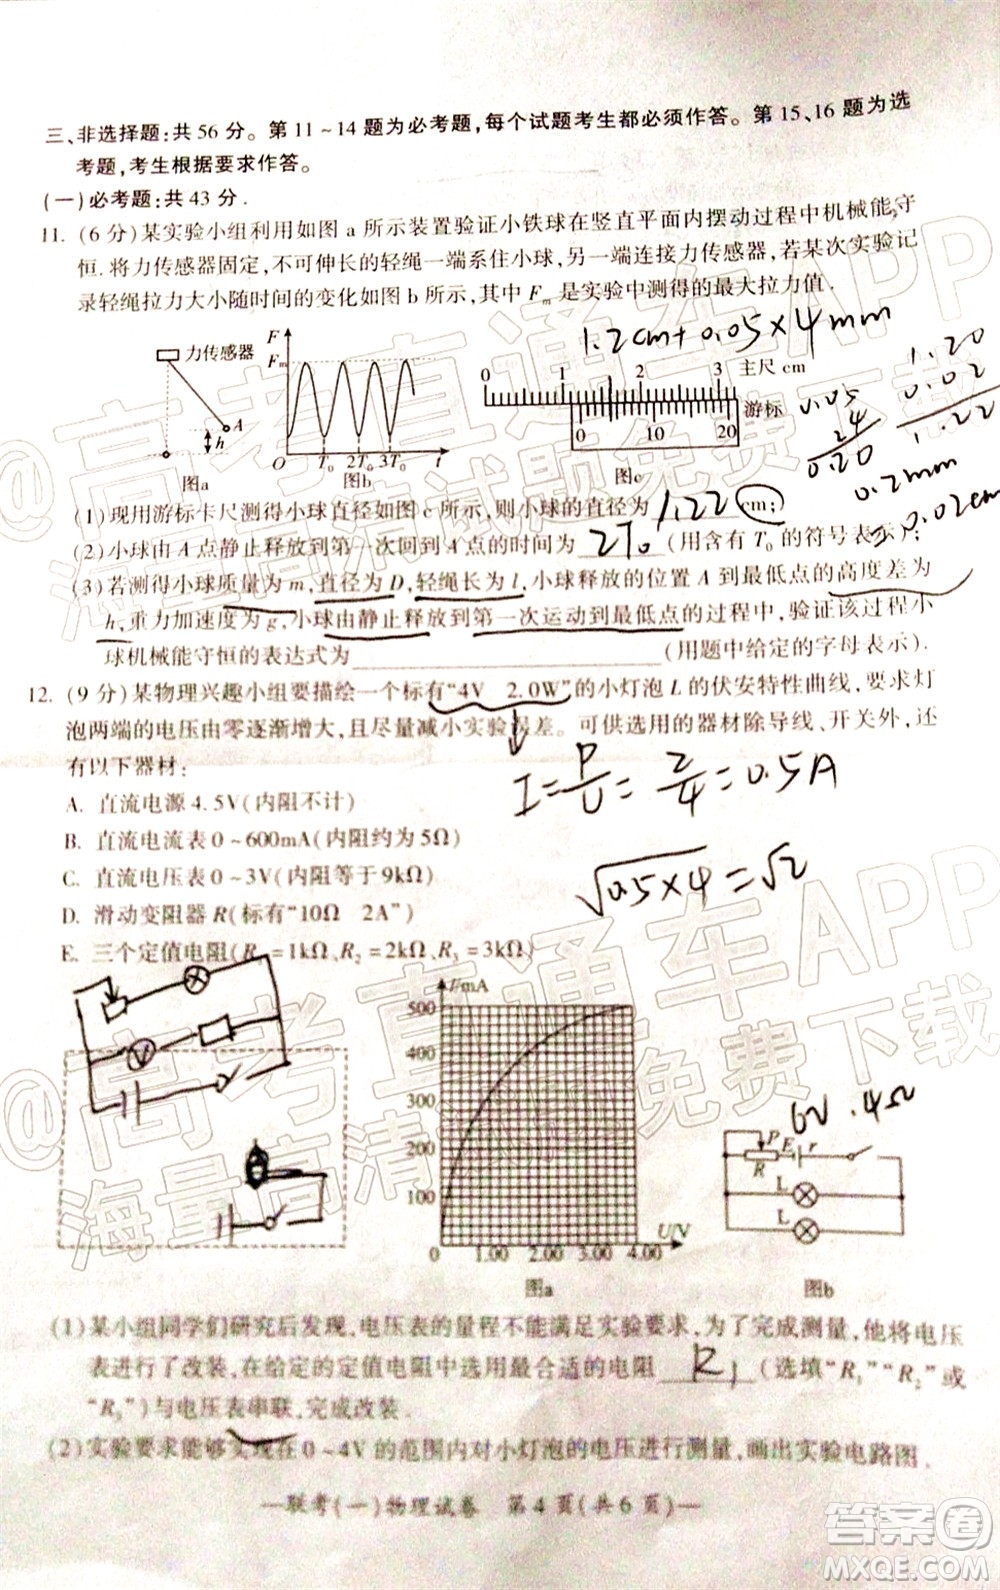 三、非选择题:共 56 分。第 11~14 题为必考题,每个试题考生都必须作答。第 15、16 题为选
考题,考生根据要求作答。
(一)必考题:共 43 分.
11. (6 分)某实验小组利用如图 a 所示装置验证小铁球在竖直平面内摆动过程中机械能守
恒.将力传感器固定,不可伸长的轻绳一端系住小球,另一端连接力传感器,若某次实验记
录轻绳拉力大小随时间的变化如图 b 所示,其中 Fₘ 是实验中测得的最大拉力值.
1.2cm+0.05×4mm
力传感器
A
h
图a
F
Fₘ
O T₀ 2T₀ 3T₀ t
图b
0 1 2 3 主尺 cm
0 10 20 游标
图c
1.20
0.02
1.22
0.05
0.20
0.2mm
0.02cm
(1)现用游标卡尺测得小球直径如图 c 所示,则小球的直径为 1.22 cm;
(2)小球由 A 点静止释放到第一次回到 A 点的时间为 2T₀ (用含有 T₀ 的符号表示);
(3)若测得小球质量为 m,直径为 D,轻绳长为 l,小球释放的位置 A 到最低点的高度差为
h,重力加速度为 g,小球由静止释放到第一次运动到最低点的过程中,验证该过程小
球机械能守恒的表达式为 (用题中给定的字母表示).
12. (9 分)某物理兴趣小组要描绘一个标有“4V 2.0W”的小灯泡 L 的伏安特性曲线,要求灯
泡两端的电压由零逐渐增大,且尽量减小实验误差。可供选用的器材除导线、开关外,还
有以下器材:
I=P/U=2/4=0.5A
A. 直流电源 4.5V(内阻不计)
B. 直流电流表 0~600mA(内阻约为 5Ω)
C. 直流电压表 0~3V(内阻等于 9kΩ)
√0.5×4=√2
D. 滑动变阻器 R(标有“10Ω 2A”)
E. 三个定值电阻(R₁=1kΩ、R₂=2kΩ、R₃=3kΩ)
V
I/mA
500
400
300
200
100
0 1.00 2.00 3.00 4.00 U/V
图a
6V .4Ω
P E r
R
L
L
图b
(1)某小组同学们研究后发现,电压表的量程不能满足实验要求,为了完成测量,他将电压
表进行了改装,在给定的定值电阻中选用最合适的电阻 R₁ (选填“R₁”“R₂”或
“R₃”)与电压表串联,完成改装.
(2)实验要求能够实现在 0~4V 的范围内对小灯泡的电压进行测量,画出实验电路图.
—联考(一)物理试卷 第 4 页(共 6 页)—
@高考直通车APP
海量高清试题免费下载
@高考直通车APP
海量高清试题免费下载
答案圈
MXQE.COM